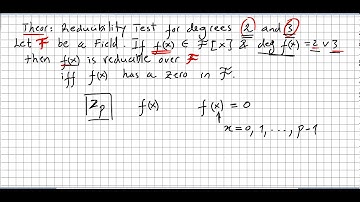 Theor: Reducibility Test for degrees 2 and 3
Let F be a Field. If f(x) ∈ F[x] & deg f(x) = 2 ∨ 3
then f(x) is reducible over F
iff f(x) has a zero in F.
Zp f(x) f(x) = 0
x = 0, 1, ..., p-1